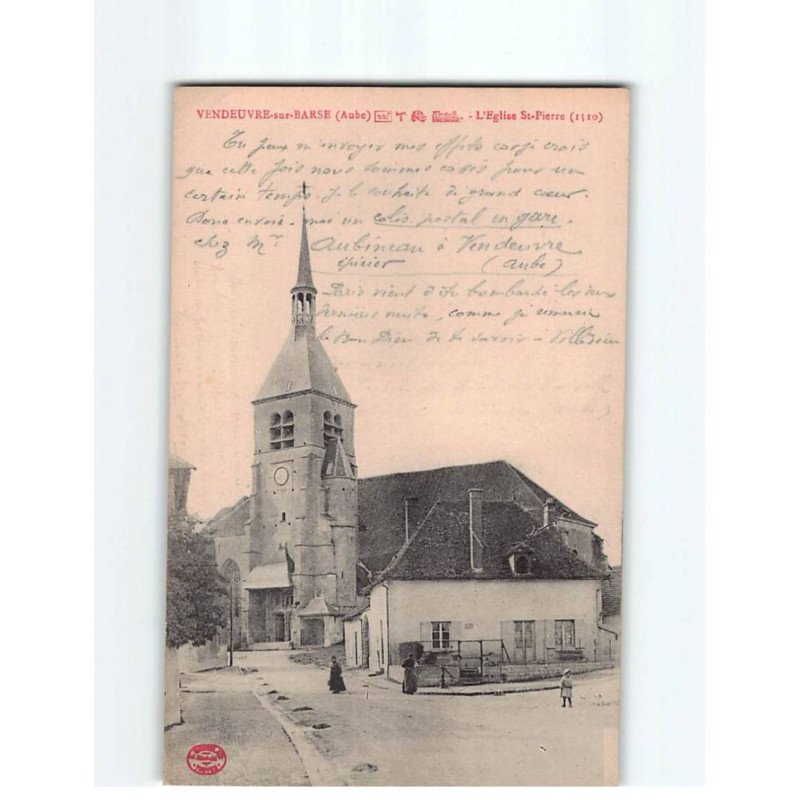 VENDEUVRE-sur-BARSE (Aube) - L'Eglise St-Pierre (1510)
Tu peux m'envoyer mes effets car je crois
que cette fois nous sommes casés pour un
certain temps. Je le souhaite de grand cœur.
Donc envoie-moi un colis postal en gare.
chez Mr Aubineau à Vendeuvre
épicier (Aube)
Paris vient d'être bombardé les deux
dernières nuits, comme je remercie
le Bon Dieu de te savoir à